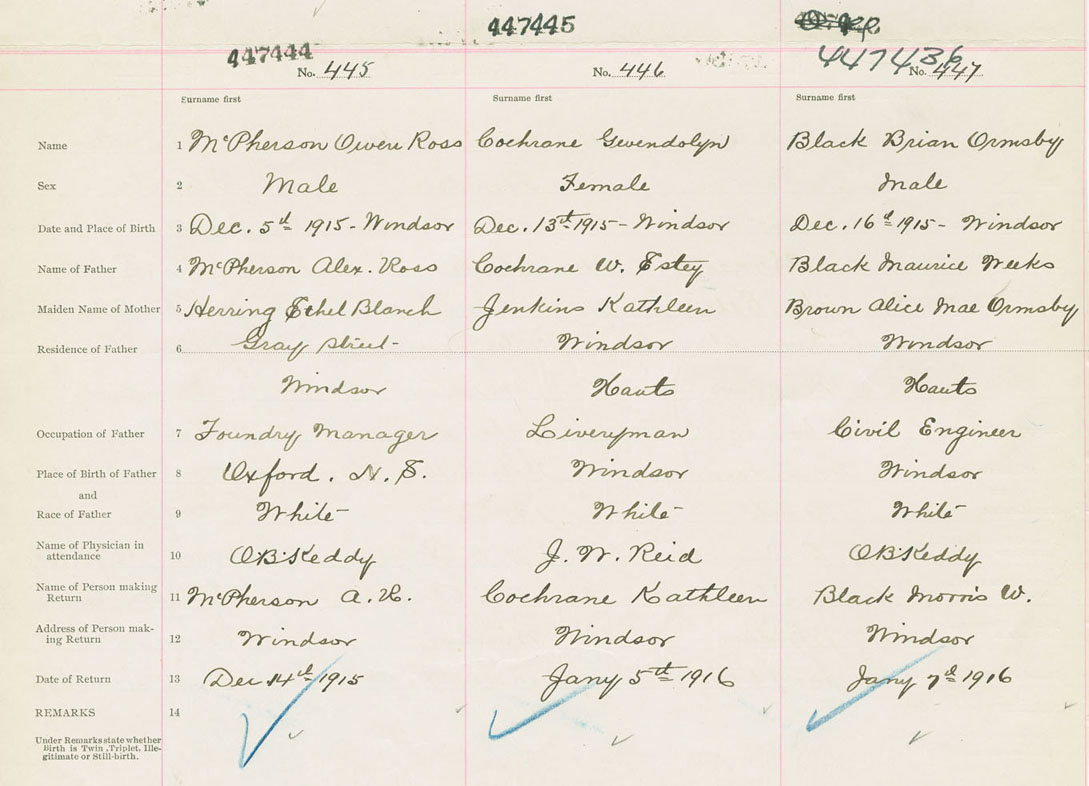 447445
447444 447436
No. 445 No. 446 No. 447
Surname first Surname first Surname first
Name 1 McPherson Owen Ross Cochrane Gwendolyn Black Brian Ormsby
Sex 2 Male Female Male
Date and Place of Birth 3 Dec. 5th 1915 - Windsor Dec. 13th 1915 - Windsor Dec. 16th 1915 - Windsor
Name of Father 4 McPherson Alex. Ross Cochrane W. Estey Black Maurice Weeks
Maiden Name of Mother 5 Herring Ethel Blanch Jenkins Kathleen Brown Alice Mae Ormsby
Residence of Father 6 Gray Street - Windsor Windsor
Windsor Hants Hants
Occupation of Father 7 Foundry Manager Liveryman Civil Engineer
Place of Birth of Father 8 Oxford. N.S. Windsor Windsor
and
Race of Father 9 White White White
Name of Physician in
attendance 10 O.B. Keddy J. W. Reid O B Keddy
Name of Person making
Return 11 McPherson A. R. Cochrane Kathleen Black Morris W.
Address of Person mak-
ing Return 12 Windsor Windsor Windsor
Date of Return 13 Dec 14th 1915 Jany 5th 1916 Jany 7th 1916
REMARKS 14
Under Remarks state whether
Birth is Twin, Triplet, Ille-
gitimate or Still-birth.